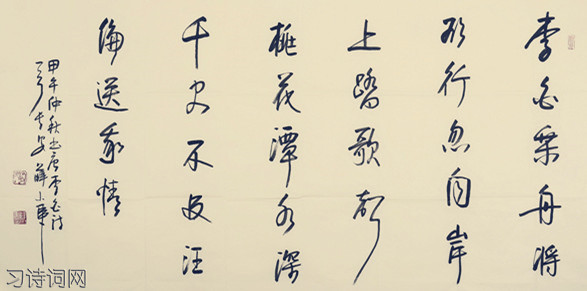 李白乘舟将
欲行忽闻岸
上踏歌声
桃花潭水深
千尺不及汪
伦送我情
甲午仲秋书唐李白诗
习诗词网